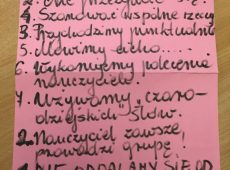 2. Nie
4. Szanować wspólne rzeczy
3. Przychodzimy punktualnie
5. Mówimy cicho.....
6. Wykonujemy polecenia
nauczyciela.
7. Używamy "czaro-
dziejskich" słów.
2. Nauczyciel zawsze
prowadzi grupę!
NIE ODDALAMY SIĘ OD